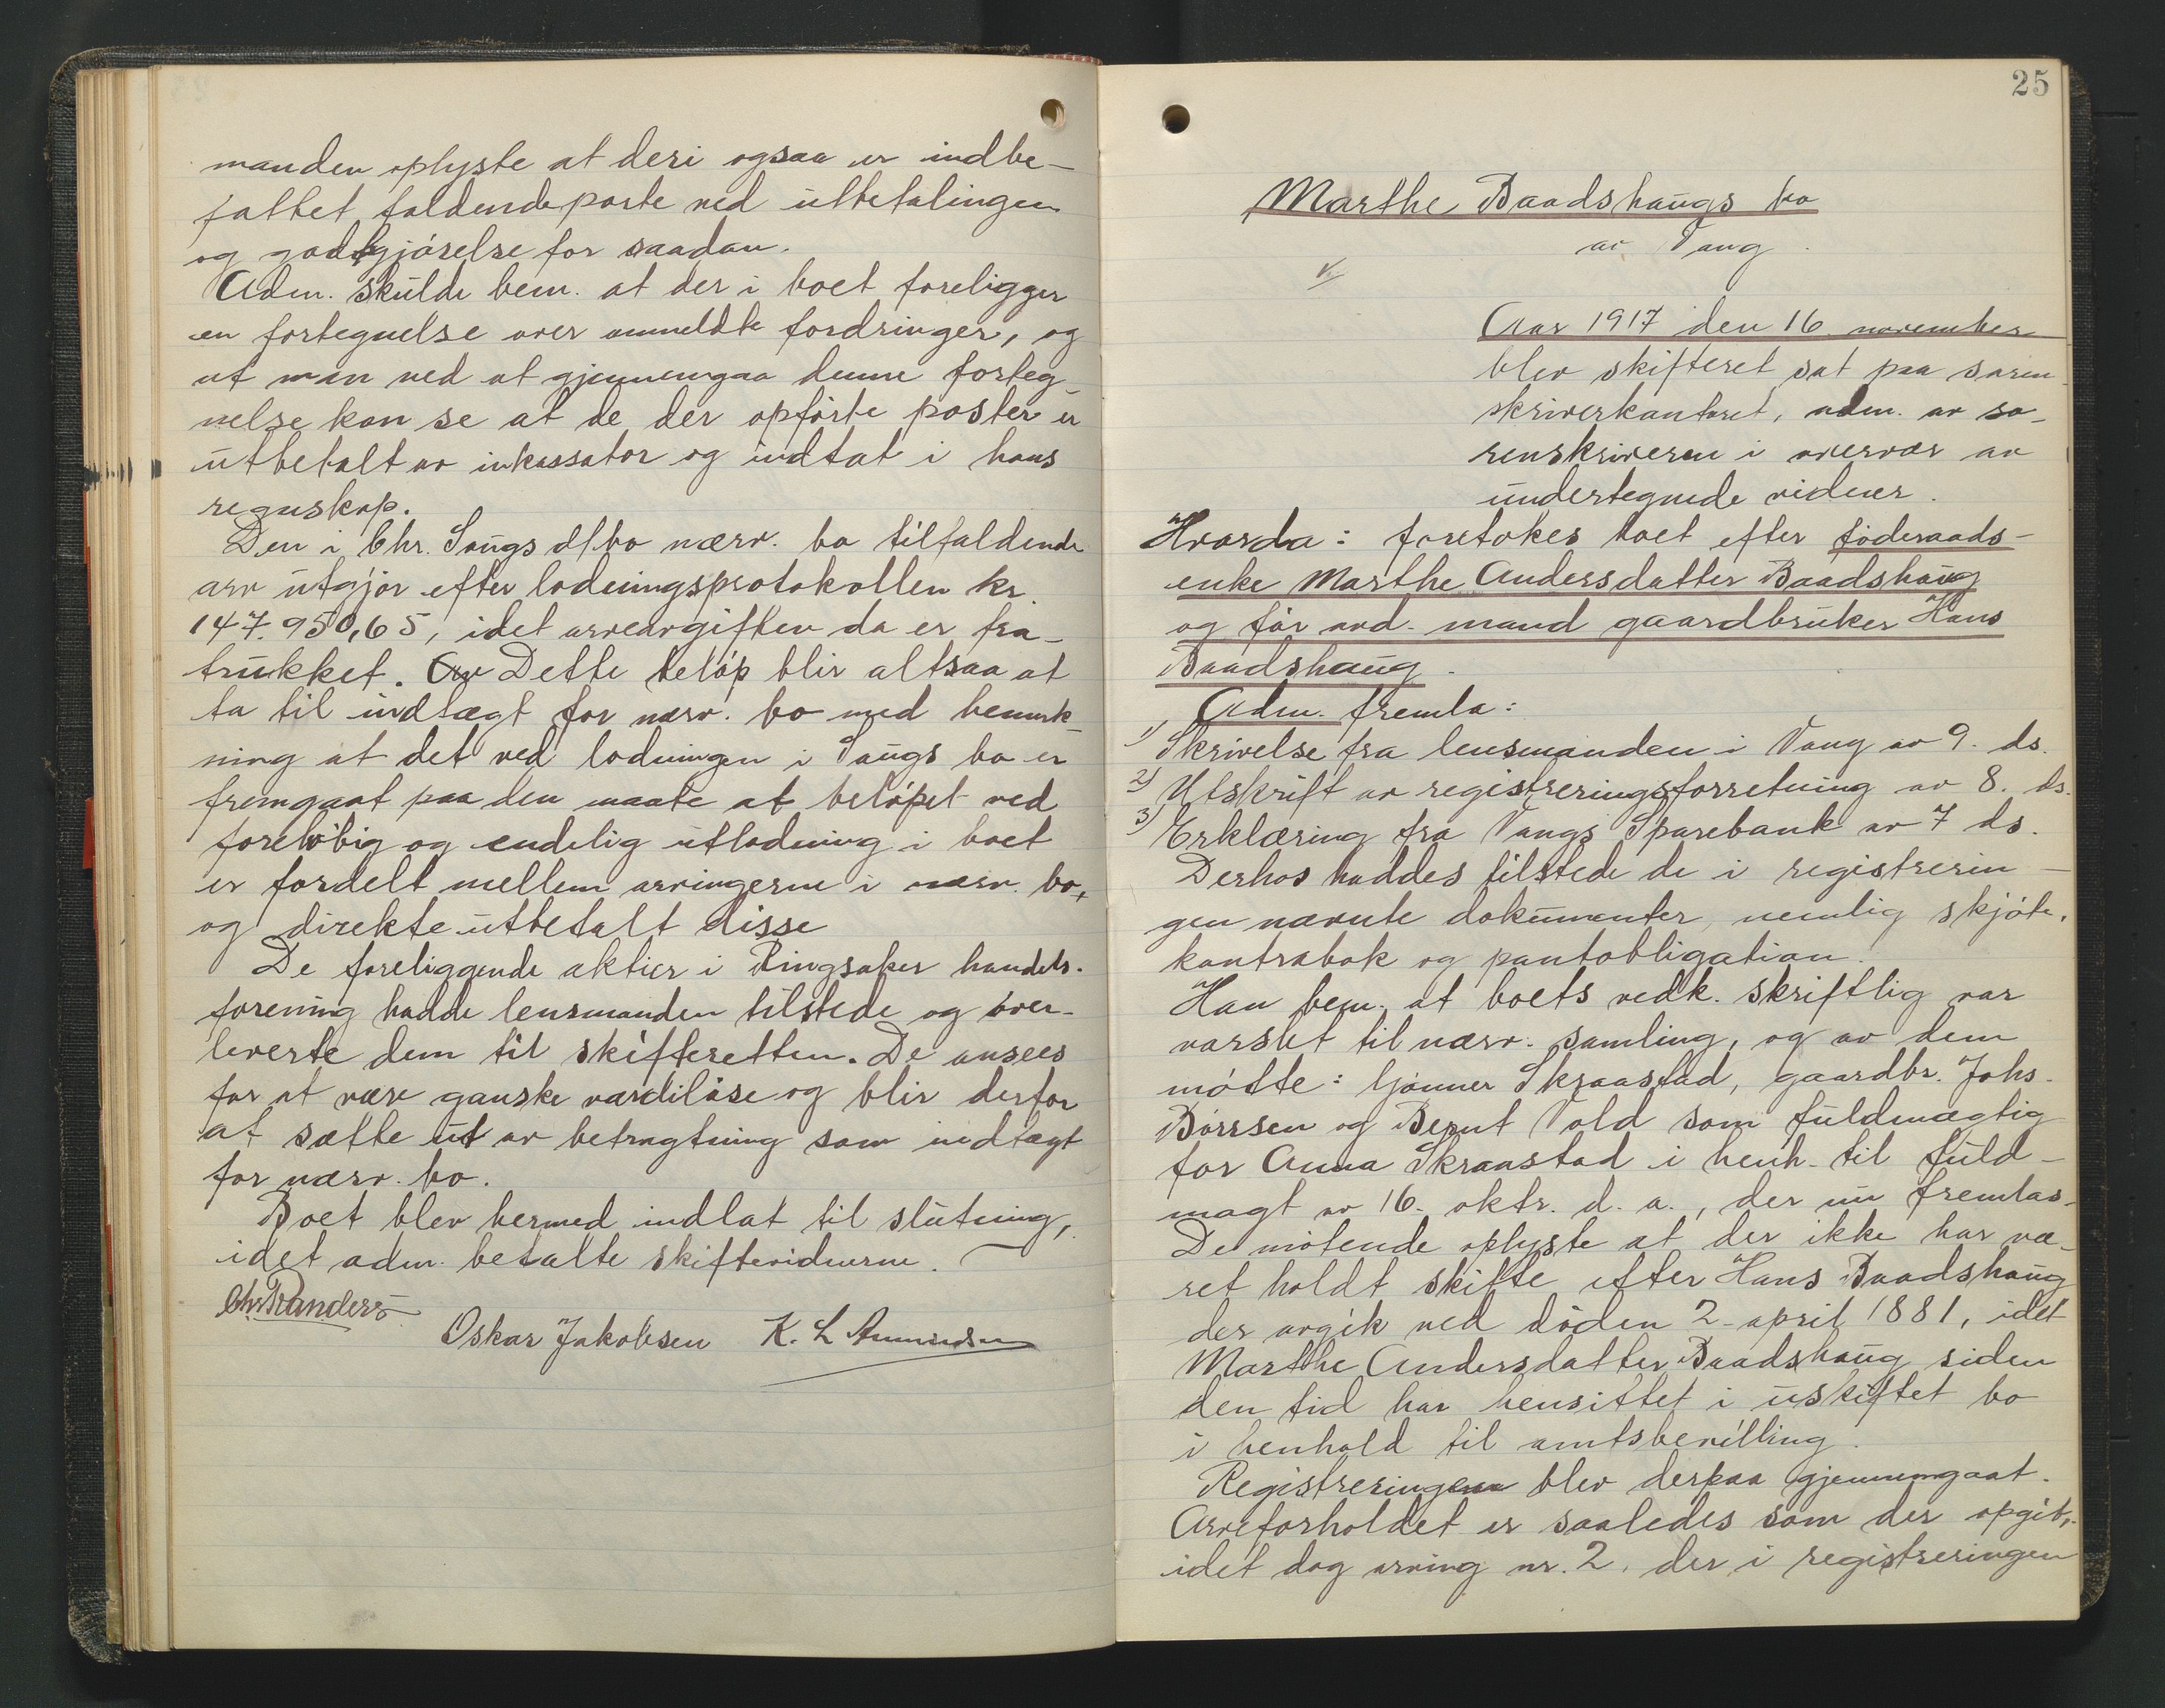 manden oplyste at deri ogsaa er indbe-
fattet faldendeparte ved utbetalingen
og godtgjörelse for saadan.
Adm. skulde bem. at der i boet foreligger
en fortegnelse over anmeldte fordringer, og
at man ved at gjennemgaa denne forteg-
nelse kan se at de der opförte poster er
utbetalt av inkassator og indtat i hans
regnskap.
Den i Chr. Saugs d/bo nærv. bo tilfaldende
arv utgjör efter lodningsprotokollen kr.
147.950,65, idet arveavgiften da er fra-
trukket. Dette belöp blir altsaa at
ta til indtægt for nærv. bo med bemerk-
ning at det ved lodningen i Saugs bo er
fremgaat paa den maate at belöpet ved
forelöbig og endelig utlodning i boet
er fordelt mellem arvingerne i nærv. bo,
og direkte utbetalt disse
De foreliggende aktier i Ringsaker handels-
forening hadde lensmanden tilstede og over-
leverte dem til skifteretten. De ansees
for at være ganske værdilöse og blir derfor
at sætte ut av betragtning som indtægt
for nærv. bo.
Boet blev hermed indlat til slutning,
idet adm. betalte skiftevidnerne.
Chr Randers
Oskar Jakobsen K. L Amundsen
25
Marthe Baadshaugs bo
av Vang.
Aar 1917 den 16. november
blev skifteret sat paa soren-
skriverkontoret, adm. av so-
renskriveren i overvær av
undertegnede vidner.
Hvorda: foretokes boet efter föderaads-
enke Marthe Andersdatter Baadshaug
og för avd. mand gaardbruker Hans
Baadshaug.
Adm. fremla:
1) Skrivelse fra lensmanden i Vang av 9. ds.
2) Utskrift av registreringsforretning av 8. ds.
3) Erklæring fra Vangs Sparebank av 7 ds.
Derhos haddes tilstede de i registrerin-
gen nævnte dokumenter, nemlig skjöte,
kontrabok og pantobligation.
Han bem. at boets vedk. skriftlig var
varslet til nærv. samling, og av dem
mötte: Gunner Skraastad, gaardbr. Johs.
Börrsen og Bernt Vold som fuldmægtig
for Anna Skraastad i henh. til fuld-
magt av 16. oktr. d. a., der nu fremlas.
De mötende oplyste at der ikke har væ-
ret holdt skifte efter Hans Baadshaug
der avgik ved döden 2. april 1881, idet
Marthe Andersdatter Baadshaug siden
den tid har hensittet i uskiftet bo
i henhold til amtsbevilling.
Registreringen blev derpaa gjennemgaat.
Arveforholdet er saaledes som der opgit,
idet dog arving nr. 2, der i registreringen